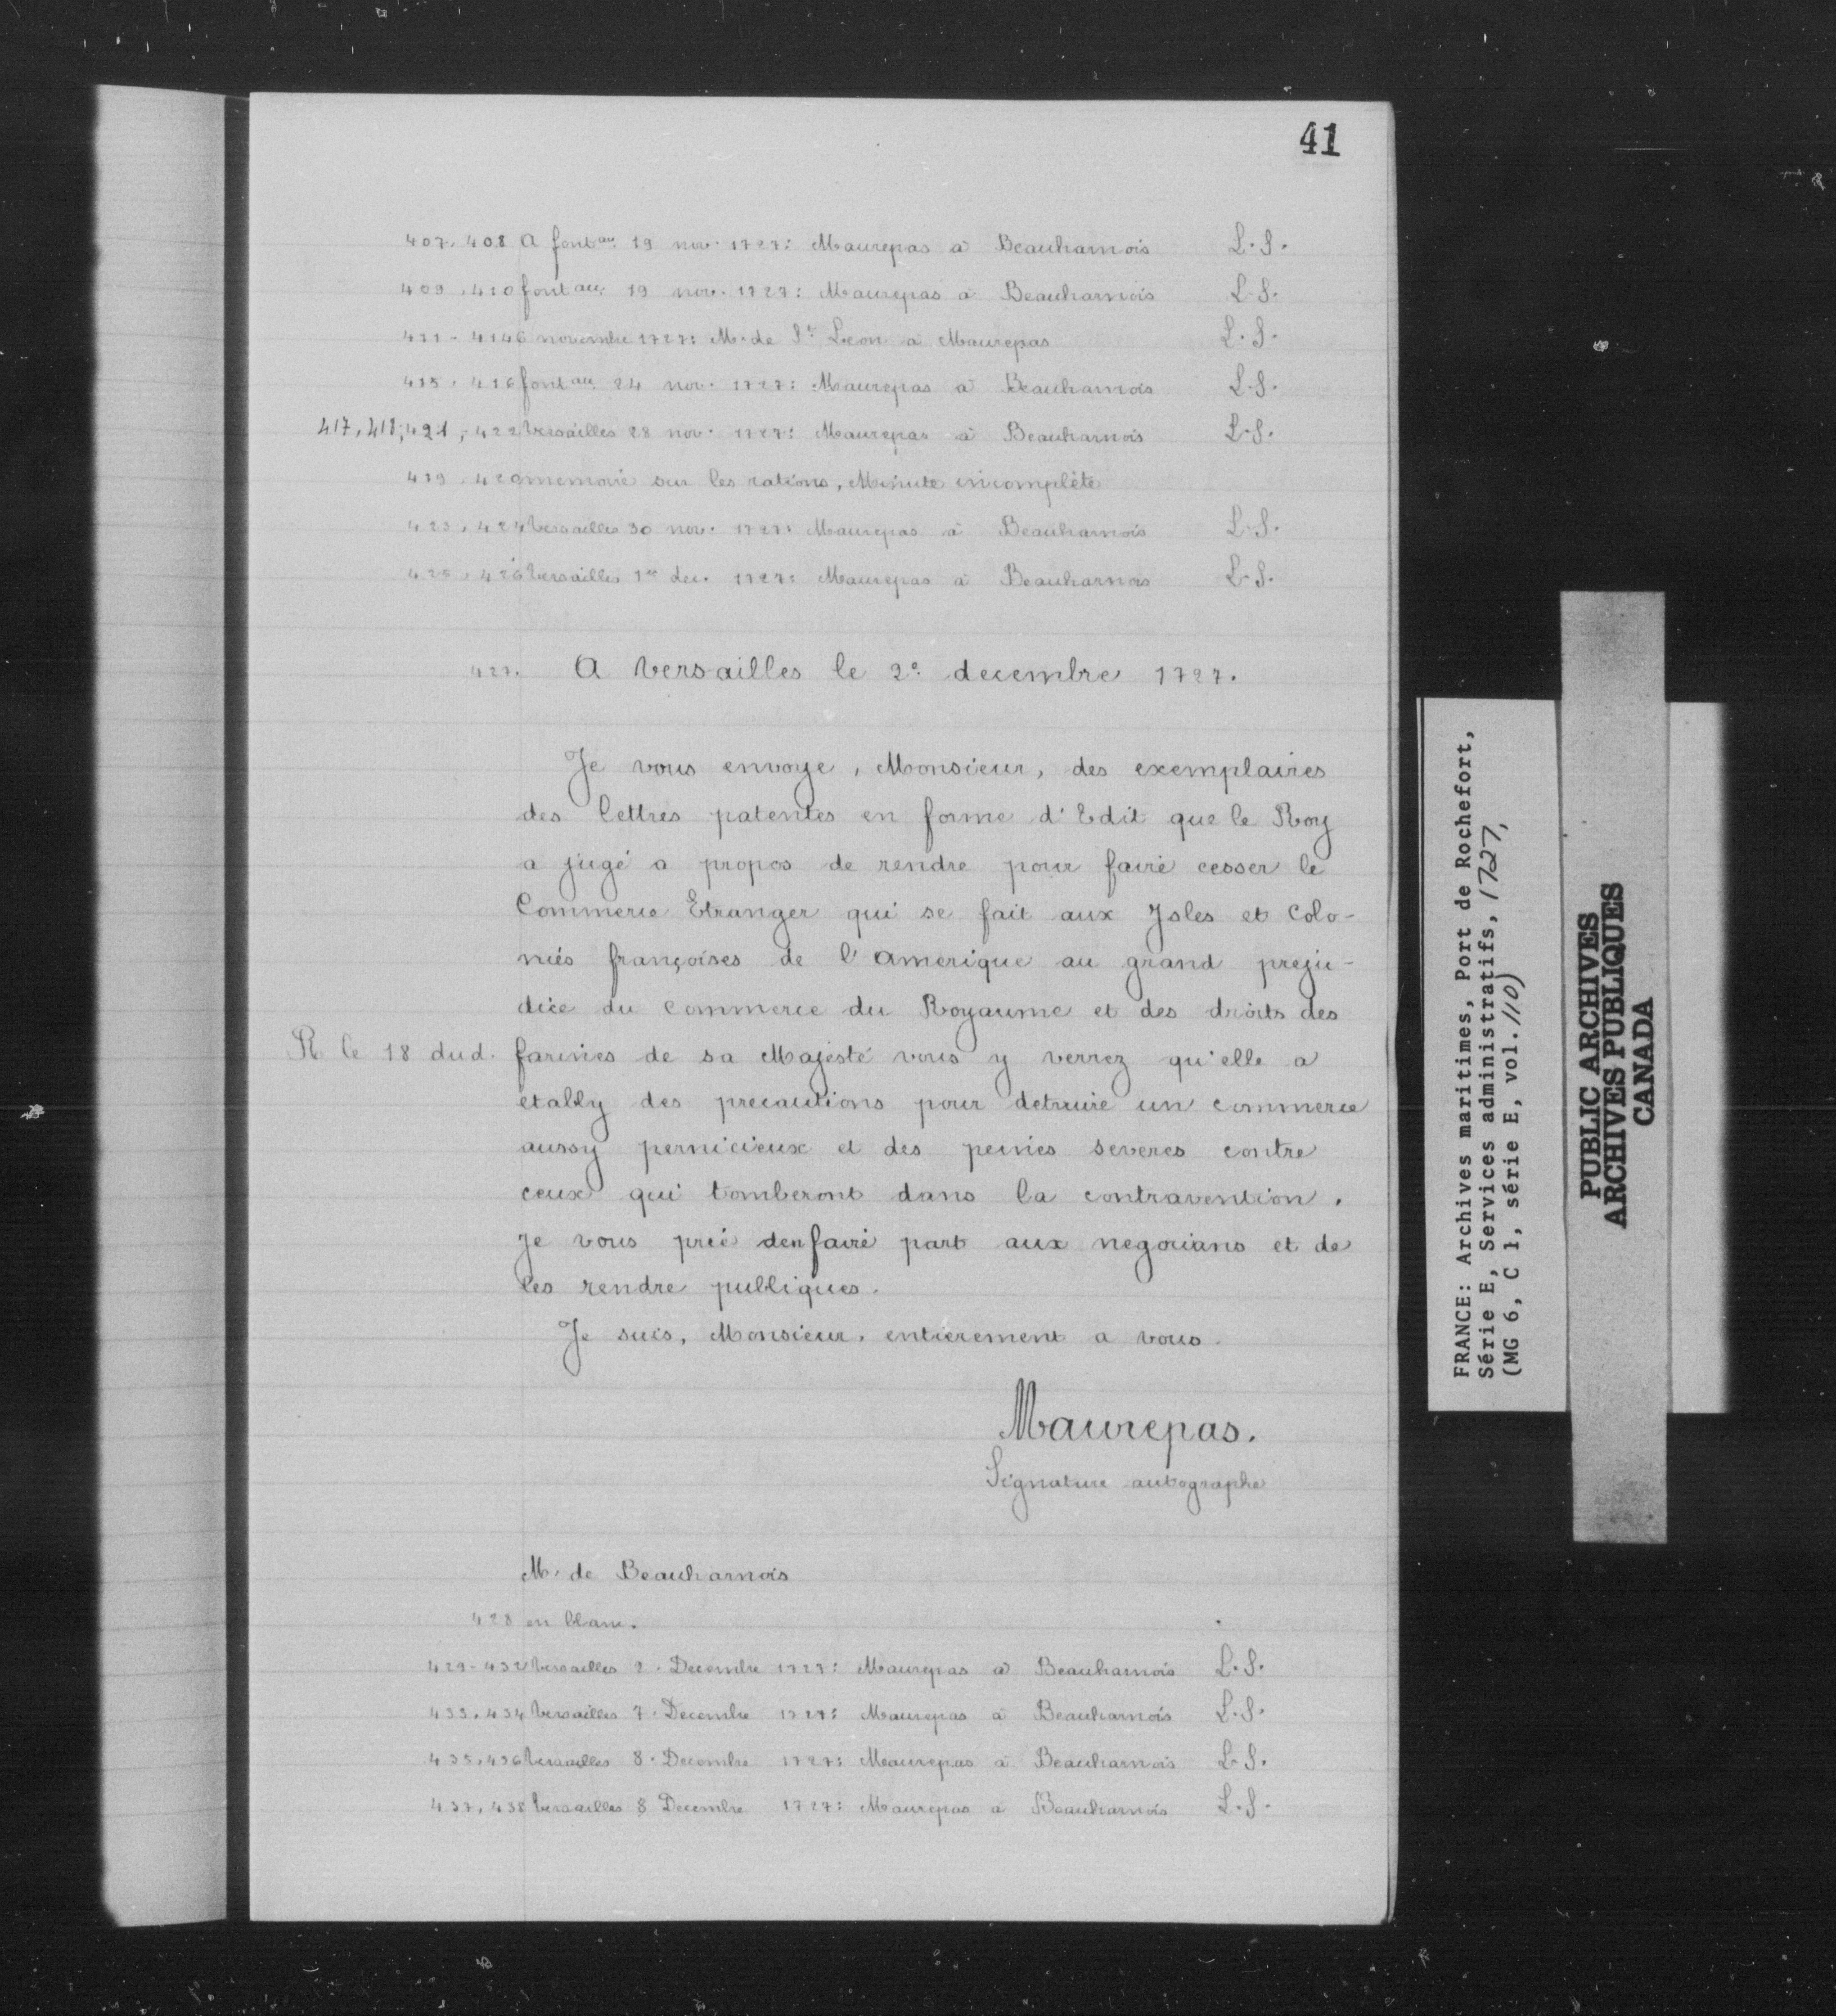 41
407, 408 A font^au. 19 nov. 1727: Maurepas à Beauharnois L. S.
409, 410 font au. 19 nov. 1727: Maurepas à Beauharnois L. S.
411 - 414 6 novembre 1727: M. de S^t Leon à Maurepas L. S.
415, 416 font au. 24 nov. 1727: Maurepas à Beauharnois L. S.
417, 418, 421, 422 Versailles 28 nov. 1727: Maurepas à Beauharnois L. S.
419, 420 memoire sur les rations, Minute incomplète
423, 424 Versailles 30 nov. 1727: Maurepas à Beauharnois L. S.
425, 426 Versailles 1er dec. 1727: Maurepas à Beauharnois L. S.
427. A Versailles le 2e decembre 1727.
Je vous envoye, Monsieur, des exemplaires
des lettres patentes en forme d'Edit que le Roy
a jugé a propos de rendre pour faire cesser le
Commerce Etranger qui se fait aux Isles et Colo-
nies françoises de l'amerique au grand preju-
dice du commerce du Royaume et des droits des
R le 18 dud. farines de sa Majesté vous y verrez qu'elle a
etably des precautions pour detruire un commerce
aussy pernicieux et des peines severes contre
ceux qui tomberont dans la contravention.
Je vous prie denfaire part aux negocians et de
les rendre publiques.
Je suis, Monsieur, entierement a vous.
Maurepas.
Signature autographe
M. de Beauharnois
428 en blanc.
429-432 Versailles 2. Decembre 1727: Maurepas à Beauharnois L. S.
433, 434 Versailles 7. Decembre 1727: Maurepas à Beauharnois L. S.
435, 436 Versailles 8. Decembre 1727: Maurepas à Beauharnois L. S.
437, 438 Versailles 8 Decembre 1727: Maurepas à Beauharnois L. S.
FRANCE: Archives maritimes, Port de Rochefort,
Série E, Services administratifs, 1727,
(MG 6, C 1, série E, vol. 110)
PUBLIC ARCHIVES
ARCHIVES PUBLIQUES
CANADA